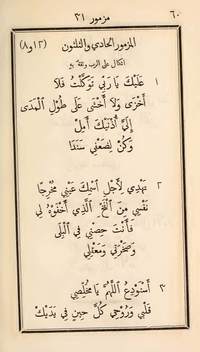 ٦٠ مزمور ٣١
المزمور الحادي والثلثون (١٢و٨)
اتكال على الرب وثقة به
١ عَلَيْكَ يَا رَبِّي تَوَكَّلْتُ فَلَا
أَخْزَى وَلَا أَخْشَى عَلَى طُولِ ٱلْمَدَى
إِلَيَّ أُذْنَيْكَ أَمِلْ
وَكُنْ لِضَعْفِي سَنَدَا
٢ تَهْدِي لِأَجْلِ ٱسْمِكَ عَيْنِي مُخْرِجًا
نَفْسِي مِنَ ٱلْفَخِّ ٱلَّذِي أَخْفَوْهُ لِي
فَأَنْتَ حِصْنِي فِي ٱلْبِلَى
وَصَخْرَتِي وَمَعْقِلِي
٣ أَسْتَوْدِعُ ٱللّٰهُمَّ يَا مُخَلِّصِي
قَلْبِي وَرُوحِي كُلَّ حِينٍ فِي يَدَيْكَ